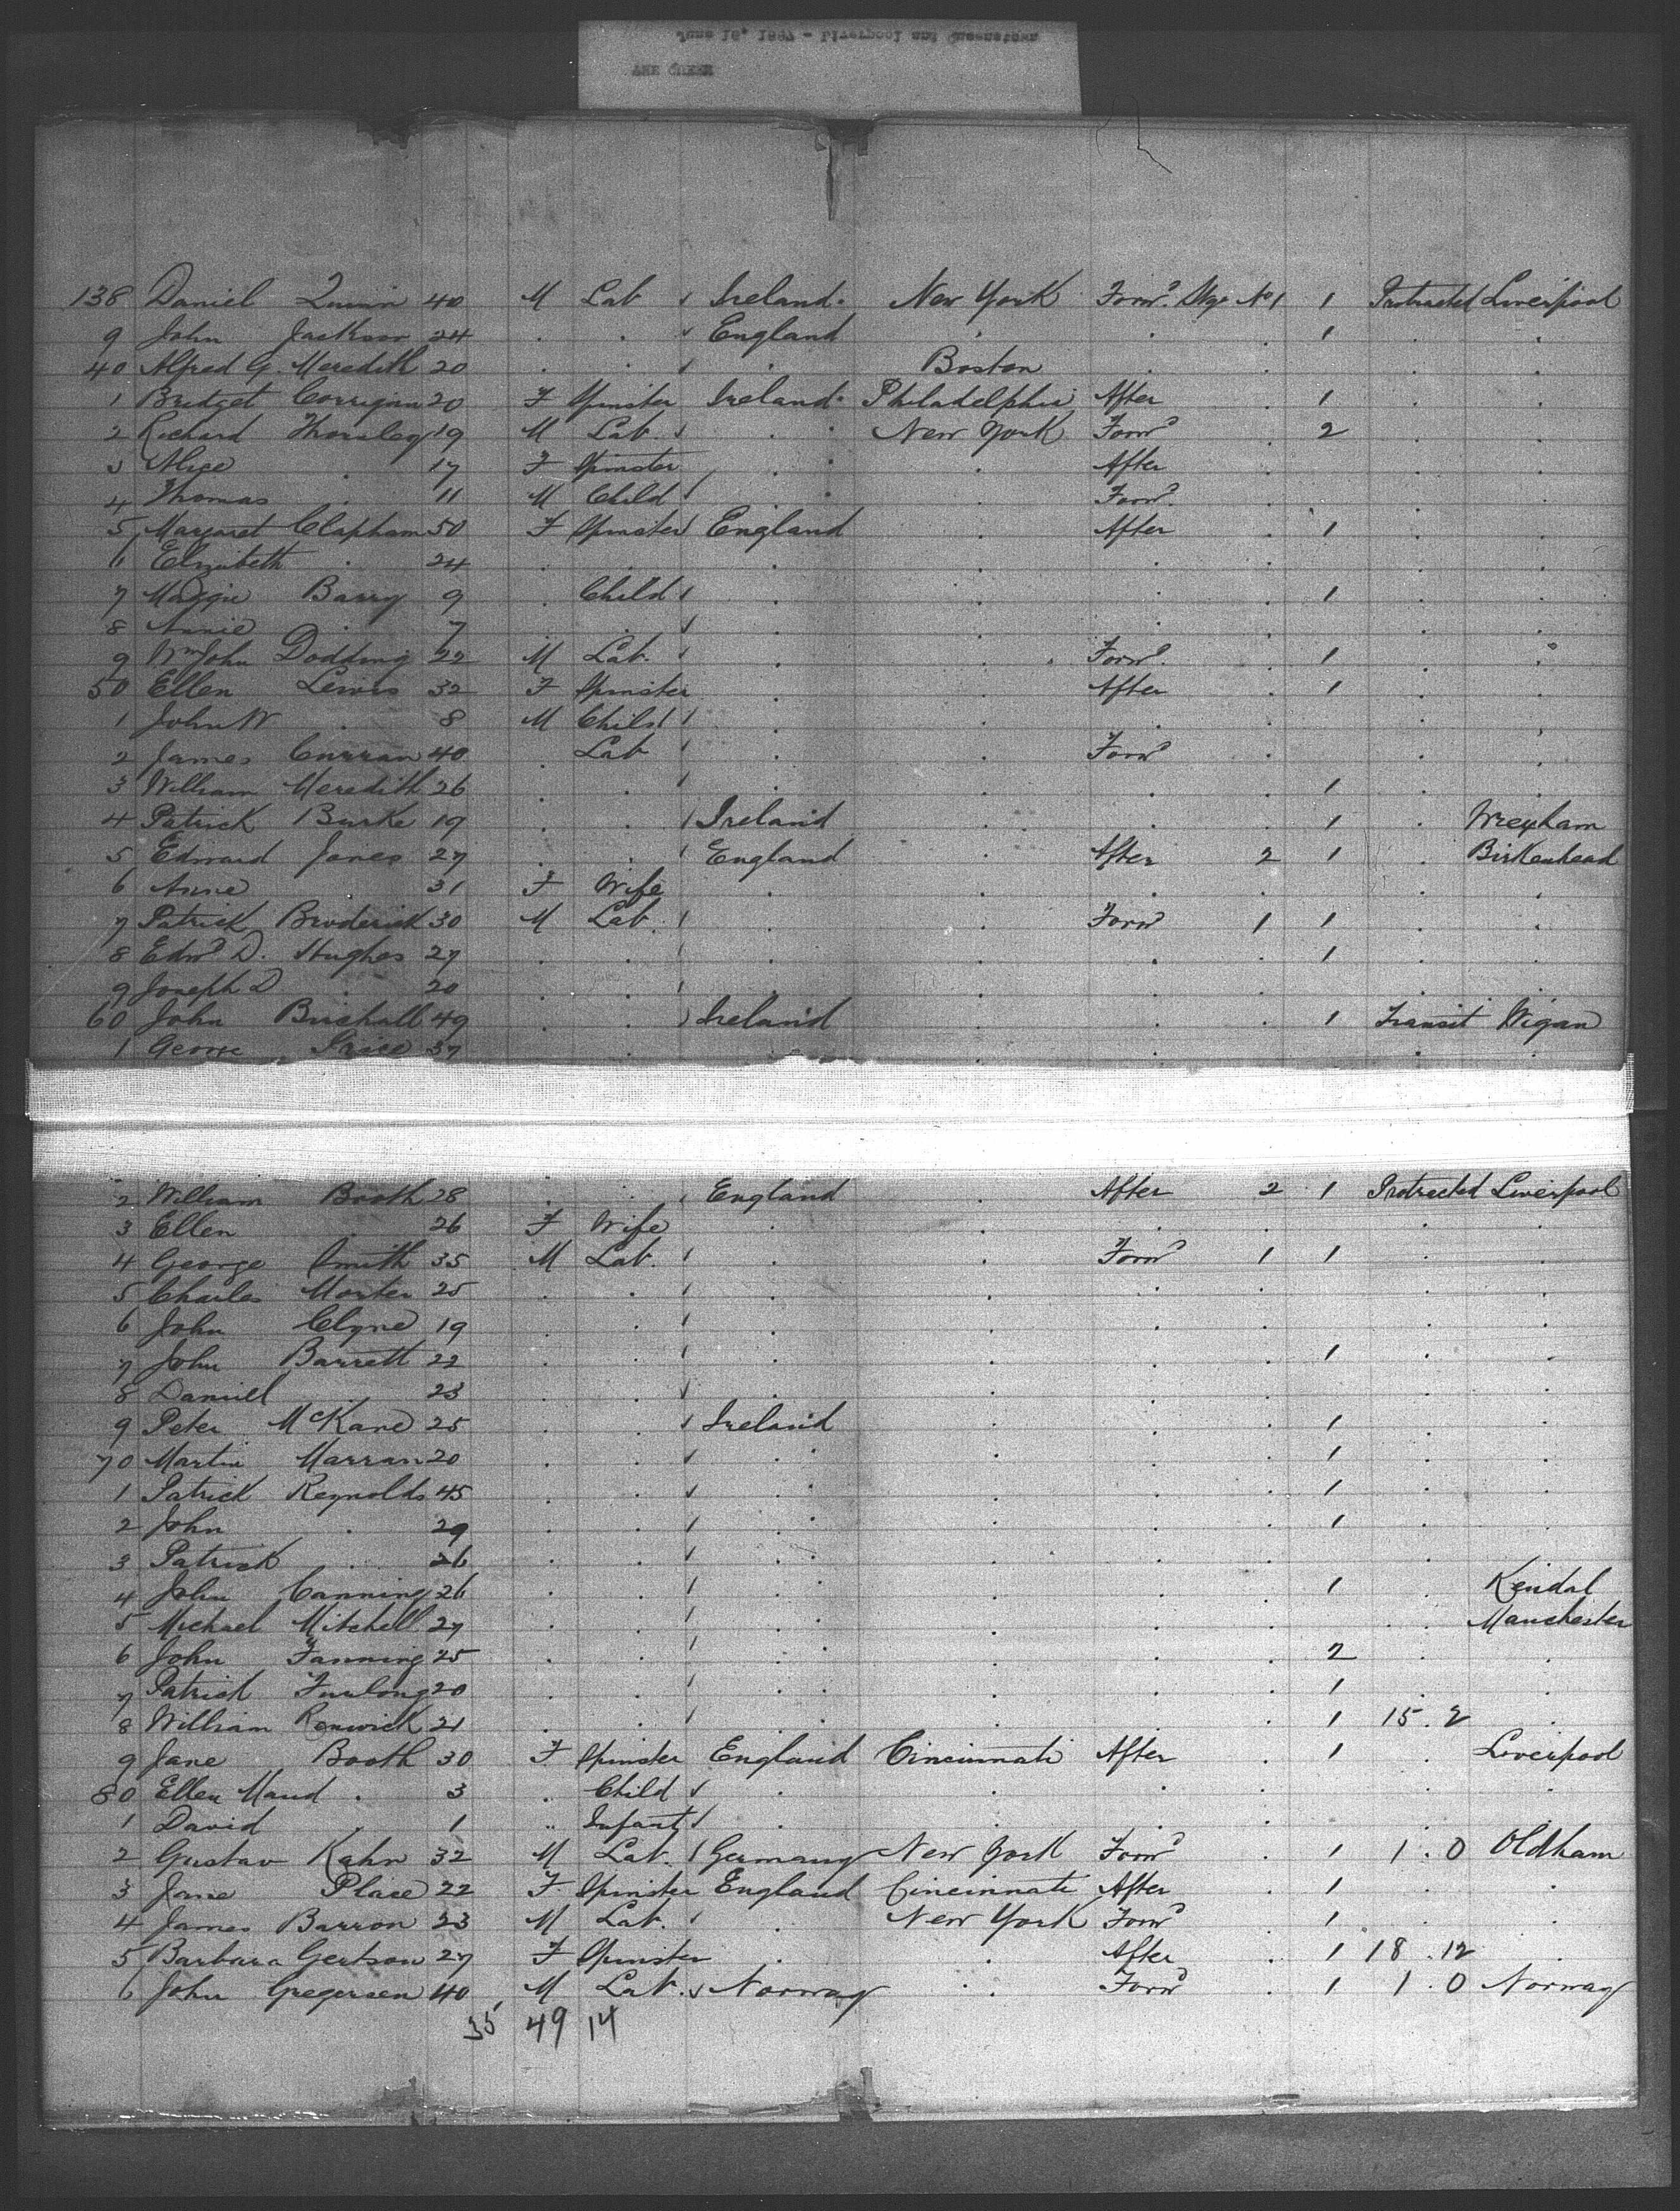 June 16, 1897 - Liverpool and Queenstown
138 Daniel Quinn 40 M Lab ✓ Ireland. New York Forwd. Stge No 1 1 Protracted Liverpool
9 John Jackson 24 . . ✓ England . . . 1 . .
40 Alfred G. Meredith 20 . . ✓ . Boston . . . . .
1 Bridget Corrigan 20 F Spinster Ireland. Philadelphia After . 1 . .
2 Richard Thorsley 19 M Lab. ✓ . New York Forwd . 2 . .
3 Alice . 17 F Spinster . . After . . .
4 Thomas . 11 M Child / . . Forwd . . .
5 Margaret Clapham 50 F Spinster / England . After . 1 . .
6 Elizabeth . 24 . . . . . . . .
7 Maggie Barry 9 . Child / . . . . 1 . .
8 Annie . 7 . . ✓ . . . . . .
9 Wm John Dodding 22 M Lab. / . . Forwd. . 1 . .
50 Ellen Lewis 32 F Spinster . . After . 1 . .
1 John W . 8 M Child / . . . . . .
2 James Curran 40 . Lab / . . Forwd . . .
3 William Meredith 26 . . / . . . . 1 . .
4 Patrick Burke 19 . . / Ireland . . . 1 . Wrexham
5 Edward Jones 27 . . / England . After 2 1 . Birkenhead
6 Anne . 31 F Wife . . . . . .
7 Patrick Broderick 30 M Lab. / . . Forwd 1 1 . .
8 Edwd D. Hughes 27 . . / . . . . 1 . .
9 Joseph D . 20 . . / . . . . . .
60 John Birchall 49 . . / Ireland . . . 1 Transit Wigan
1 George Price 37 . . . . . . .
2 William Booth 28 . . / England . After 2 1 Protracted Liverpool
3 Ellen . 26 F Wife . . . . . .
4 George Smith 35 M Lab. / . . Forwd 1 1 . .
5 Charles Morter 25 . . / . . . . . .
6 John Clyne 19 . . / . . . . . .
7 John Barrett 22 . . / . . . . 1 . .
8 Daniel . 23 . . ✓ . . . . . .
9 Peter McKane 25 . . ✓ Ireland . . . 1 . .
70 Martin Marran 20 . . ✓ . . . . 1 . .
1 Patrick Reynolds 45 . . ✓ . . . . 1 . .
2 John . 29 . . / . . . . 1 . .
3 Patrick . 26 . . / . . . . . .
4 John Canning 26 . . / . . . . 1 . Kendal
5 Michael Mitchell 27 . . / . . . . . . Manchester
6 John Fanning 25 . . / . . . . 2 . .
7 Patrick Furlong 20 . . / . . . . 1 . .
8 William Renwick 21 . . / . . . . 1 15 . 2 .
9 Jane Booth 30 F Spinster England Cincinnati After . 1 . Liverpool
80 Ellen Maud . 3 . Child ✓ . . . . . .
1 David . 1 " Infant / . . . . . .
2 Gustav Kahn 32 M Lab. / Germany New York Forwd . 1 1 . 0 Oldham
3 Jane Place 22 F. Spinster England Cincinnati After . 1 . .
4 James Barron 23 M Lab. / . New York Forwd . 1 . .
5 Barbara Gertson 27 F Spinster . . After . 1 18 . 12 .
6 John Gregersen 40 M Lab. ✓ Norway . Forwd . 1 1 . 0 Norway
35 49 14